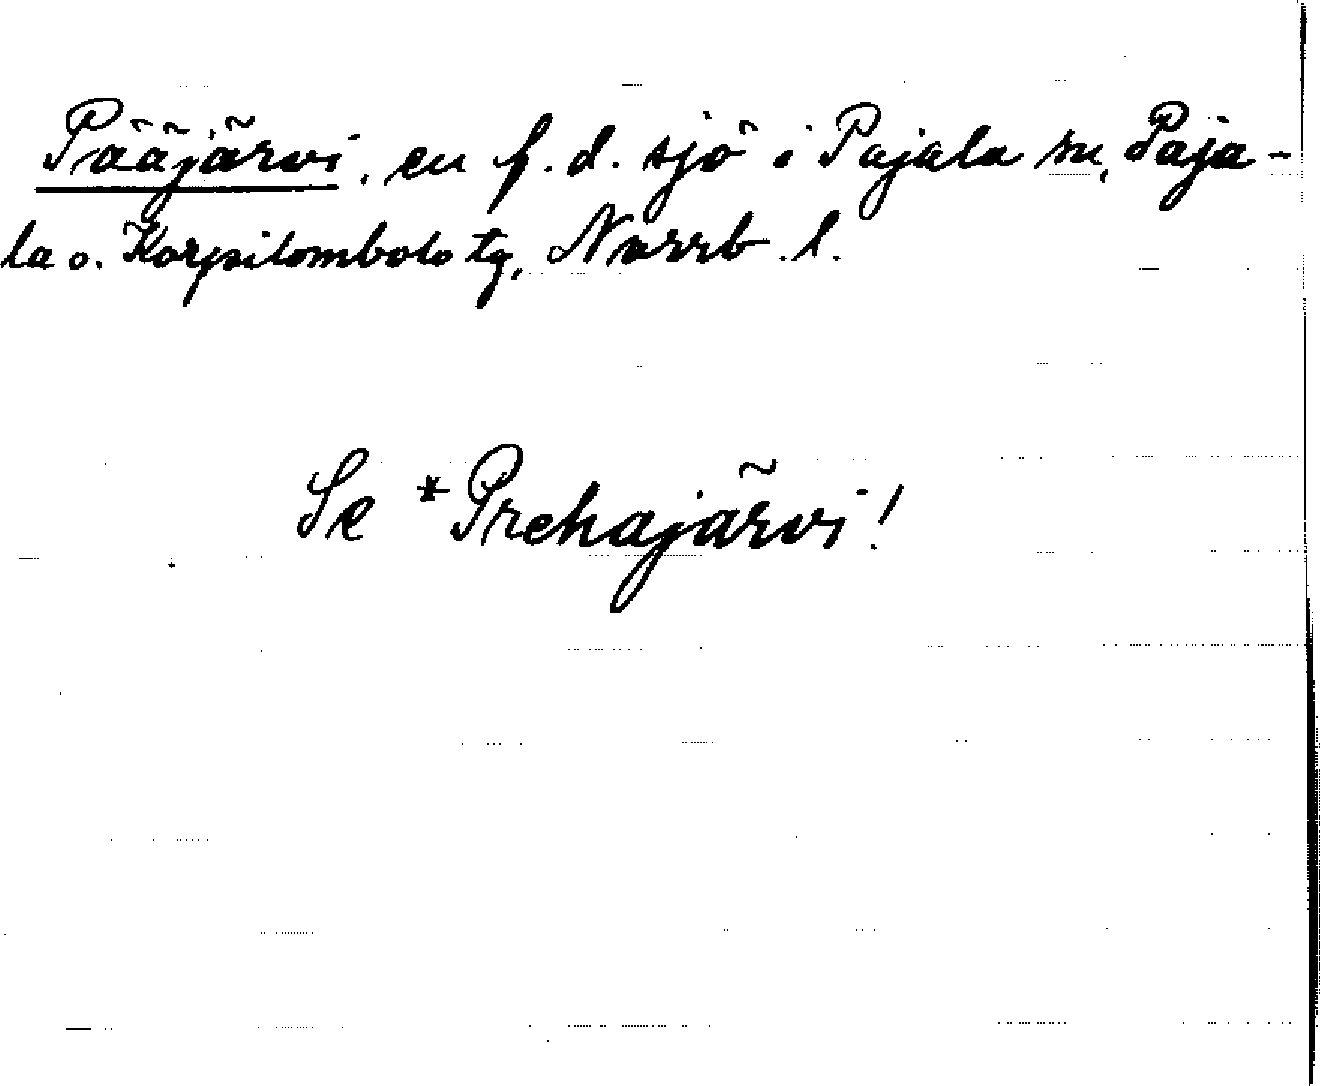 Pääjärvi, en f.d. sjö i Pajala sn, Paja-
la o. Korpilombolo tg, Norrb. l.
Se *Prehajärvi!